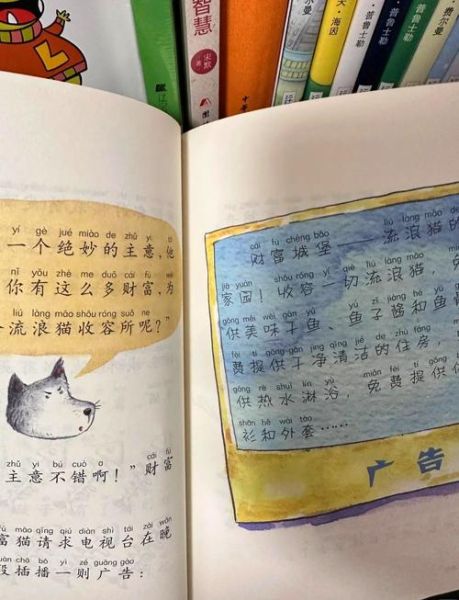 智慧
宋默
著
夫·海因
·普鲁士勒
·普鲁士勒
费尔曼
L
yí gè jué miào de zhǔ yi
一个绝妙的主意，他
nǐ yǒu zhè me duō cái fù
你有这么多财富，为
liú làng māo shōu róng suǒ ne
流浪猫收容所呢？”
zhǔ yi bú cuò a cái fù
主意不错啊！”财富
fù māo qǐng qiú diàn shì tái zài wǎn
富猫请求电视台在晚
duàn chā bō yì zé guǎng gào
段插播一则广告：
cái fù chéng bǎo liú làng māo de
财富城堡——流浪猫的
jiā yuán shōu róng yí qiè liú làng māo
家园！收容一切流浪猫，免
gōng měi wèi gān yú yú zǐ jiàng hé yú
供美味干鱼、鱼子酱和鱼
fèi tí gōng gān jìng qīng jié de zhù fáng
费提供干净清洁的住房，
gōng rè shuǐ lín yù miǎn fèi tí gōng
供热水淋浴，免费提供
shān hé wài tào
衫和外套……
广告